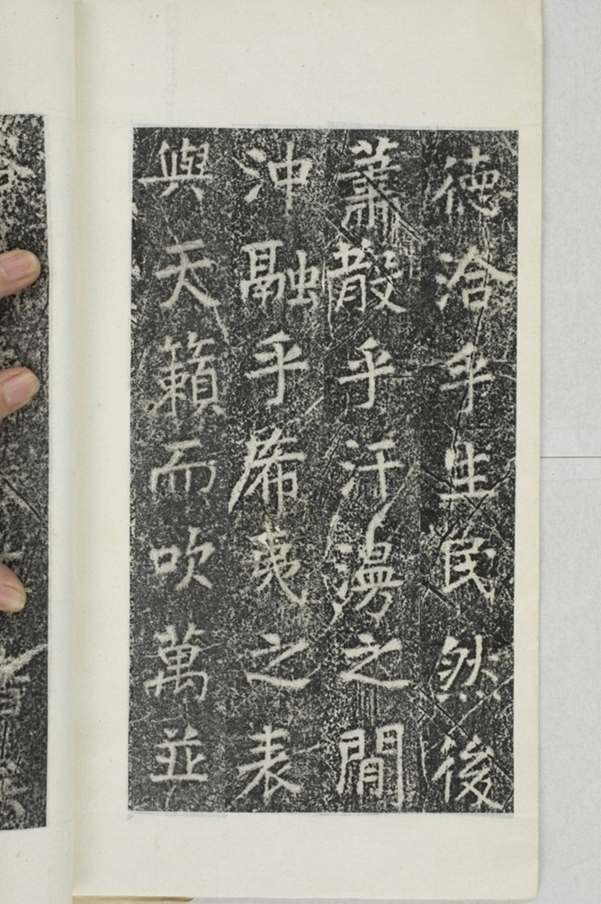 德洽乎生民然後
蕭散乎汗漫之閒
沖融乎希夷之表
與天籟而吹萬並